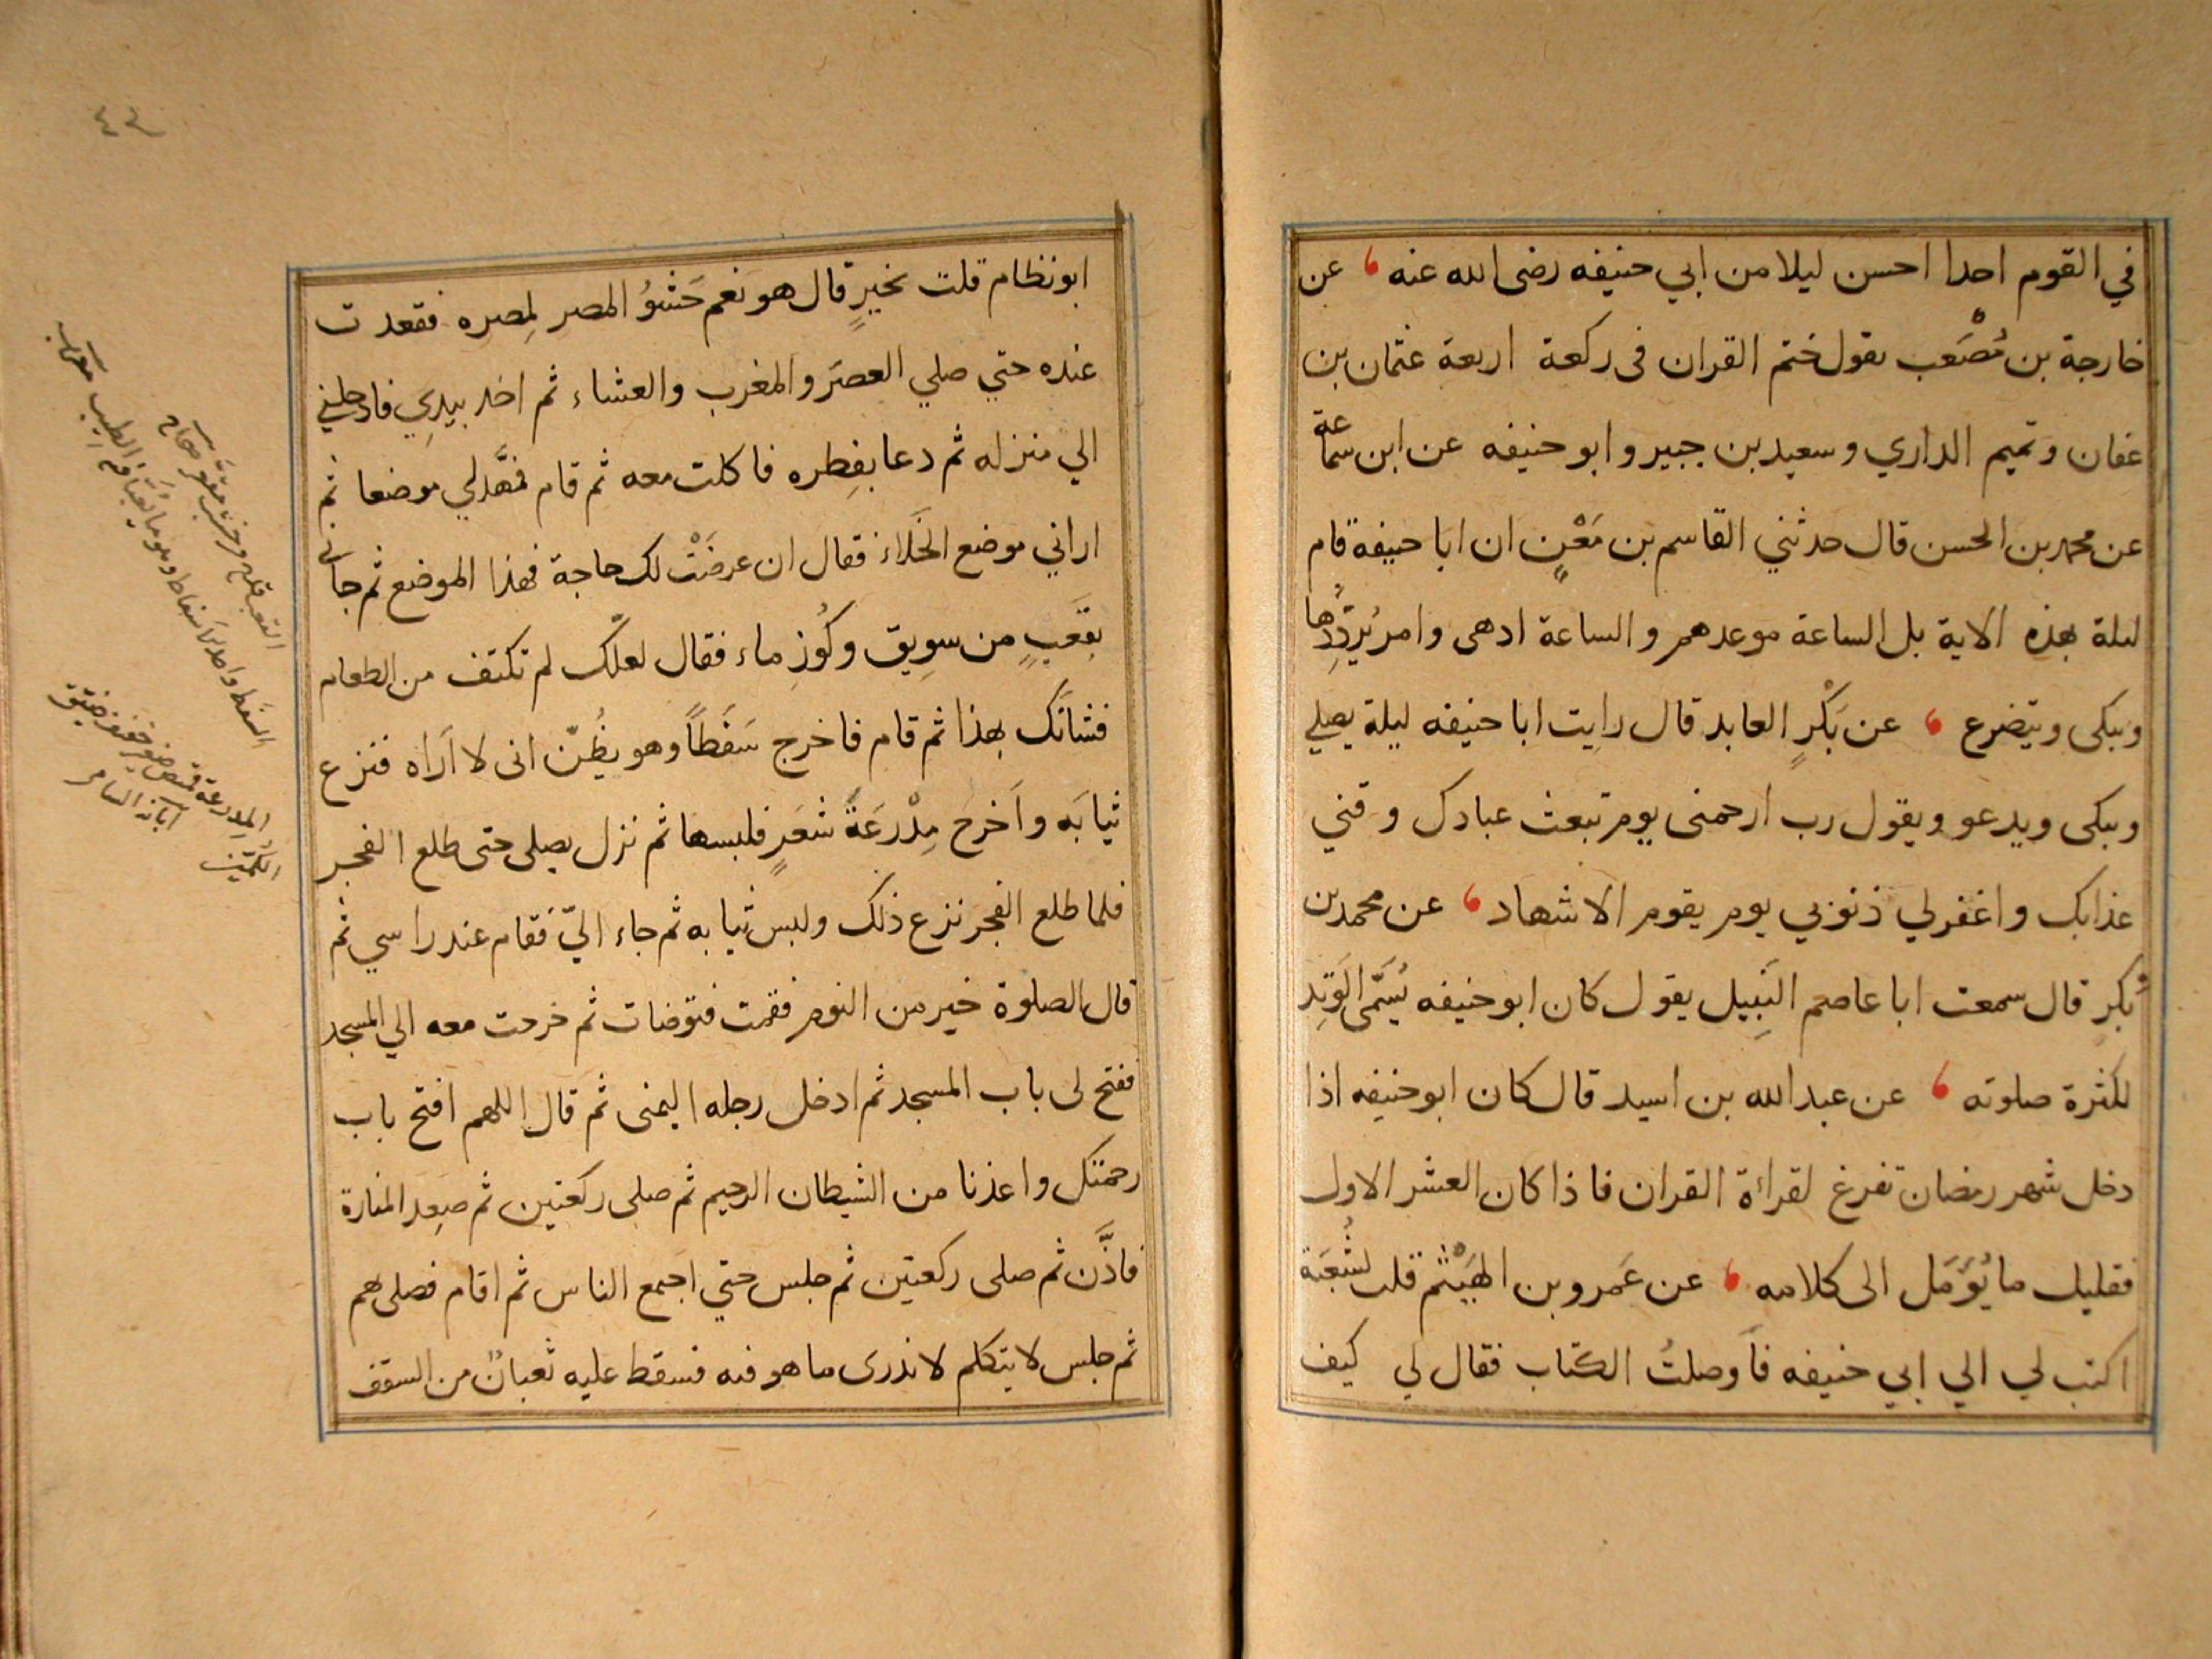 في القوم احدا احسن ليلا من ابي حنيفه رضى الله عنه عن
خارجة بن مُصْعَب يقول ختم القران فى ركعة اربعة عثمان بن
عفان وتميم الداري وسعيد بن جبير وابو حنيفه عن ابن سماعة
عن محمد بن الحسن قال حدثني القاسم بن مَعْنٍ ان ابا حنيفه قام
ليلة بهذه الاية بل الساعة موعدهم والساعة ادهى وامر يُرَدِّدُها
ويبكى ويتضرع عن بَكْرٍ العابد قال رايت ابا حنيفه ليلة يصلي
ويبكى ويدعو ويقول رب ارحمنى يوم تبعث عبادك وقني
عذابك واغفرلي ذنوبي يوم يقوم الاشهاد عن محمد بن
بكرٍ قال سمعت ابا عاصم النَبِيل يقول كان ابو حنيفه يُسَمّى الوَتِد
لكثرة صلوته عن عبد الله بن اسيد قال كان ابو حنيفه اذا
دخل شهر رمضان تفرغ لقراءة القران فاذا كان العشر الاول
فقليل ما يُؤَمَل الى كلامه عن عَمرو بن الهَيْثم قلت لشُعَبة
اكتب لي الي ابي حنيفه فأوصلتُ الكتاب فقال لي كيف
٤٣
ابو نظام قلت بخيرٍ قال هو نعم حَشوُ المصر لِمصره فقعدت
عنده حتي صلي العصَر والمغرب والعشاء ثم اخذ بيدِي فادخلني
الي منزله ثم دعا بفِطره فاكلت معه ثم قام فمهَّد لي موضعا ثم
اراني موضع الخَلاء فقال ان عرضَتْ لك حاجة فهذا الموضع ثم جاني
بقَعبٍ من سوِيق وكُوزِ ماء فقال لعلّك لم تكتف من الطعام
فشانَك بهذا ثم قام فاخرج سَفَطاً وهو يظُنّ انى لا اَراه فنزع
ثيابَه واَخرجَ مِدْرَعَةً شعَرٍ فلبسها ثم نزل يصلى حتى طلع الفجر
فلما طلع الفجر نزع ذلك ولبس ثيابه ثم جاء اليّ فقام عند راسي ثم
قال الصلوة خير من النوم فقمت فتوضات ثم خرجت معه الي المسجد
ففتح لى باب المسجد ثم ادخل رجله اليمنى ثم قال اللهم افتح باب
رحمتك واعذنا من الشيطان الرجيم ثم صلى ركعتين ثم صعِد المنارة
فاذَّن ثم صلى ركعتين ثم جلس حتي اجمع الناس ثم اقام فصلى بهم
ثم جلس لا يتكلم لا ندرى ما هو فيه فسقط عليه ثعبانٌ من السقف
القعب قدح من خشب مقعر صحاح
السفط واحد الاسفاط وهو ما يعبأ فيه الطيب
المدرعة قميص
الكمين